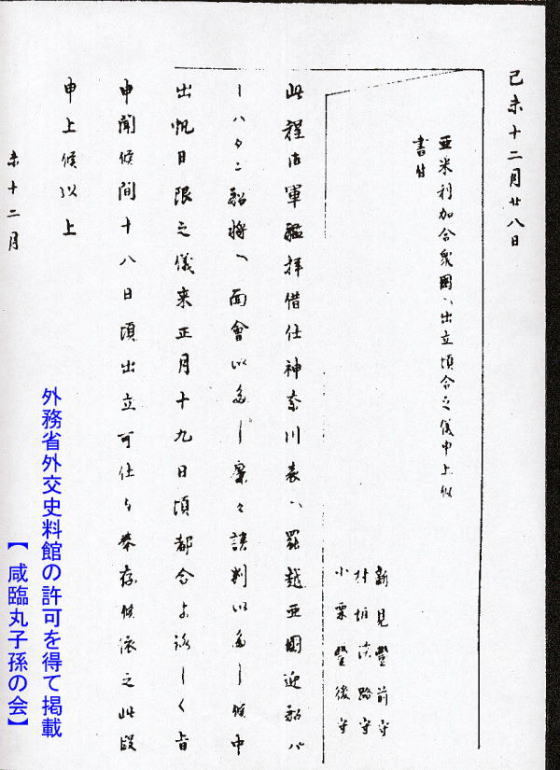 己未十二月廿八日
亜米利加合衆国へ出立頃合之儀申上候
書付
新見豊前守
村垣淡路守
小栗豊後守
此程御軍艦拝借仕神奈川表へ罷越亜国迎船パ
ーハタン船将へ面會いたし寛々談判いたし候中
出帆日限之儀来正月十九日頃都合よろしく旨
申聞候間十八日頃出立可仕与奉存候依之此段
申上候以上
未十二月
外務省外交史料館の許可を得て掲載
【 咸臨丸子孫の会】